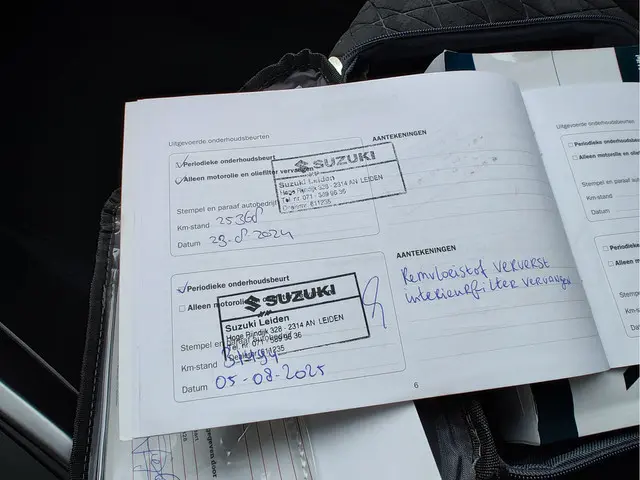 Uitgevoerde onderhoudsbeurten
Periodieke onderhoudsbeurt
Alleen motorolie en oliefilter vervangen
SUZUKI
Suzuki Leiden
Hoge Rijndijk 328 - 2314 AN LEIDEN
Tel nr. 071 - 589 96 36
Dealernr. 611235
Stempel en paraaf autobedrijf
Km-stand
Datum 23-08-2024
AANTEKENINGEN
Periodieke onderhoudsbeurt
Alleen motorolie
SUZUKI
Suzuki Leiden
Hoge Rijndijk 328 - 2314 AN LEIDEN
Tel nr. 071 - 589 96 36
Dealernr. 611235
Stempel en paraaf autobedrijf
Km-stand
Datum 05-08-2025
AANTEKENINGEN
Remvloeistof ververst
interieurfilter vervangen
6
Uitgevoerde onderhoudsbeurten
Periodieke onderhoud
Alleen motorolie en
Stempel en paraaf
Km-stand
Datum
Periodieke
Alleen m
Stempel
Km-sta
Datum